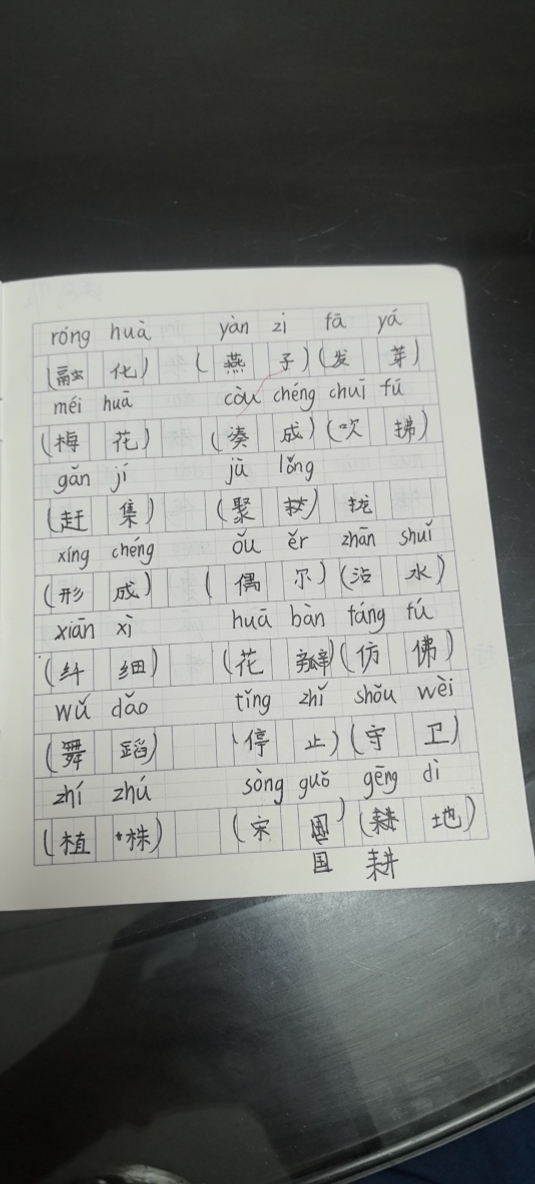 róng huà yàn zi fā yá
(融 化) (燕 子) (发 芽)
méi huā còu chéng chuī fú
(梅 花) (凑 成) (吹 拂)
gǎn jí jù lǒng
(赶 集) (聚 拢) 拢
xíng chéng ǒu ěr zhān shuǐ
(形 成) (偶 尔) (沾 水)
xiān xì huā bàn fáng fú
(纤 细) (花 瓣) (仿 佛)
wǔ dǎo tǐng zhǐ shǒu wèi
(舞 蹈) (停 止) (守 卫)
zhí zhú sòng guǒ gēng dì
(植 株) (宋 国) (耕 地)
国 耕